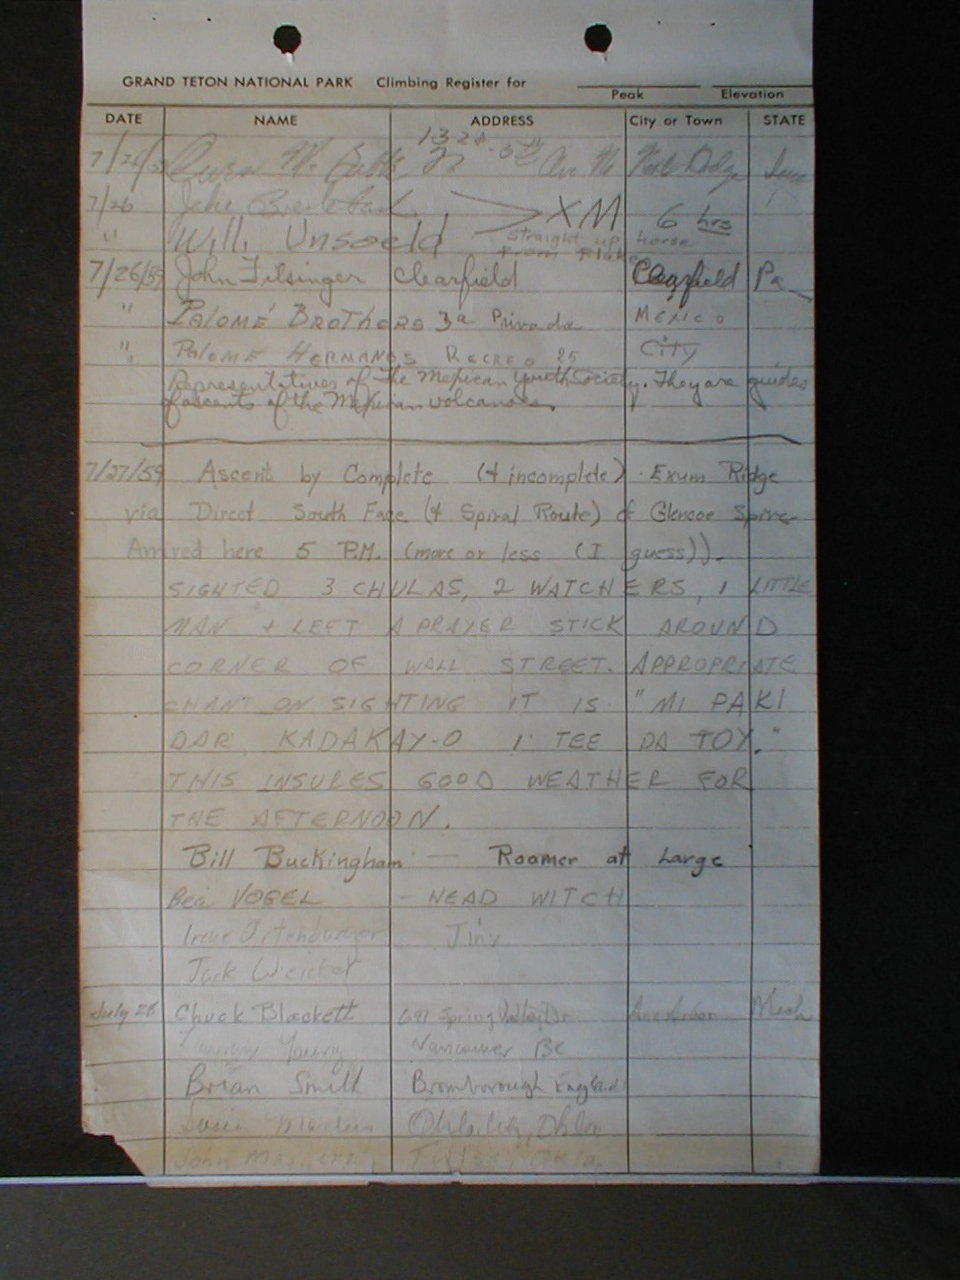 GRAND TETON NATIONAL PARK Climbing Register for
Peak Elevation
DATE NAME ADDRESS City or Town STATE
1328
7/26/59 22 - 5th Ave N Fort Dodge Iowa
7/26 Jake XM 6 hrs
" Willi Unsoeld straight up horse
from
7/26/59 John Filsinger Clearfield Clearfield Pa
" PALOMÉ BROTHERS 3a Privada México
" PALOMÉ HERMANOS RECREO 25 City
Representatives of The Mexican Youth Society. They are guides
of ascents of the Mexican volcanoes.
7/27/59 Ascent by Complete (& incomplete) Exum Ridge
via Direct South Face (& Spiral Route) of Glencoe Spire
Arrived here 5 P.M. (more or less (I guess)).
SIGHTED 3 CHULAS, 2 WATCHERS, 1 LITTLE
MAN & LEFT A PRAYER STICK AROUND
CORNER OF WALL STREET. APPROPRIATE
CHANT ON SIGHTING IT IS "MI PAKI
DAR KADAKAY-O I TEE DA TOY."
THIS INSURES GOOD WEATHER FOR
THE AFTERNOON.
Bill Buckingham — Roamer at Large
Bea VOGEL - HEAD WITCH
Irene Ortenburger Jinx
Jack
July 28 Chuck Blackett 691 Spring Valley Dr Ann Arbor Mich
Young Vancouver BC
Brian Smith Bromborough England
Okla City, Okla
John Tulsa, Okla.